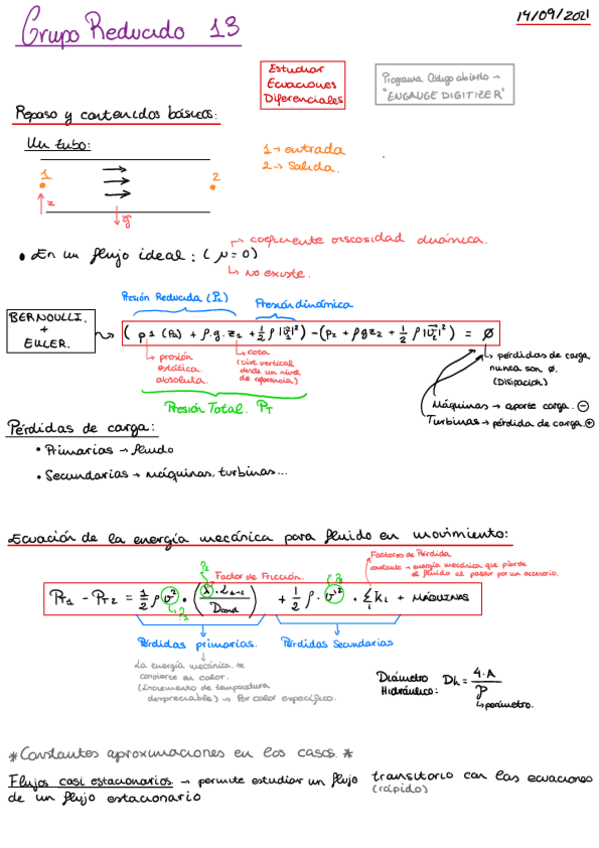 Grupo Reducido 13
14/09/2021
Estudiar
Ecuaciones
Diferenciales
Programa Código abierto →
"ENGAUGE DIGITIZER"
Repaso y contenidos básicos:
Un tubo:
1 → entrada
2 → Salida.
1
2
z
g
• En un flujo ideal: (μ=0)
↳ coeficiente viscosidad dinámica.
↳ No existe.
Presión Reducida (P̂₁)
Presión dinámica
BERNOULLI.
+
EULER.
(p1 (P₂) + ρ.g.z₁ + ½ ρ|v₁|²) - (p₂ + ρgz₂ + ½ ρ|v₂|²) = ∅
↳ presión
estática
absoluta.
↳ cota
(Dist. vertical
desde un nivel
de referencia)
↳ pérdidas de carga,
nunca son ∅.
(Disipación)
Presión Total. P_T
Máquinas → aporte carga. ⊖
Turbinas → pérdida de carga. ⊕
Pérdidas de carga:
• Primarias → fluido
• Secundarias → máquinas, turbinas...
Ecuación de la energía mecánica para fluido en movimiento:
Factores de Pérdida
constante → energía mecánica que pierde
el fluido al pasar por un accesorio.
Factor de Fricción.
P_T1 - P_T2 = ½ ρ v² · (λ · L₁₋₂ / D) + ½ ρ · v² · Σ kᵢ + MÁQUINAS
Pérdidas primarias.
Pérdidas Secundarias
↳ La energía mecánica se
convierte en calor.
(Incremento de temperatura
despreciable) → Por calor específico.
Diámetro
Hidráulico: Dh = 4·A / P
↳ perímetro.
* Constantes aproximaciones en los casos. *
Flujos casi estacionarios. → permite estudiar un flujo transitorio con las ecuaciones
(rápido)
de un flujo estacionario